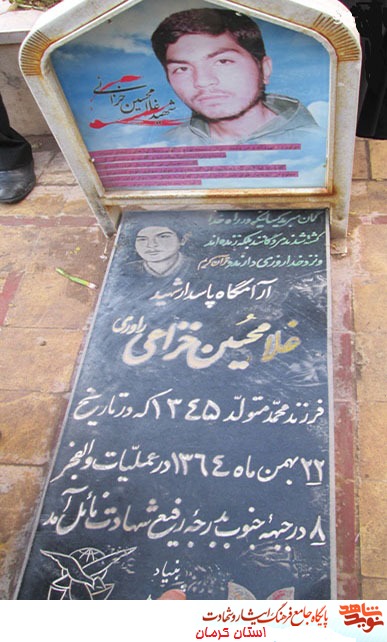 شهید غلامحسین خزاعی
گمان مبرید کسانیکه در راه خدا
کشته شدند مردگانند بلکه زنده اند
و نزد خدا روزی دارند قرآن کریم
آرامگاه پاسدار شهید
غلامحسین خزاعی راوری
فرزند محمد متولد ۱۳۴۵ که در تاریخ
۲۲ بهمن ماه ۱۳۶۴ در عملیات والفجر
۸ در جبهه جنوب بدرجه رفیع شهادت نائل آمد
بنیاد
نوید شاهد
پایگاه جامع فرهنگ ایثار و شهادت
استان کرمان